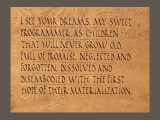 I SEE YOUR DREAMS, MY SWEET
PROGRAMMER, AS CHILDREN
THAT WILL NEVER GROW OLD,
FULL OF PROMISE, NEGLECTED AND
FORGOTTEN, DISSOLVED AND
DISEMBODIED WITH THE FIRST
HOPE OF THEIR MATERIALIZATION.